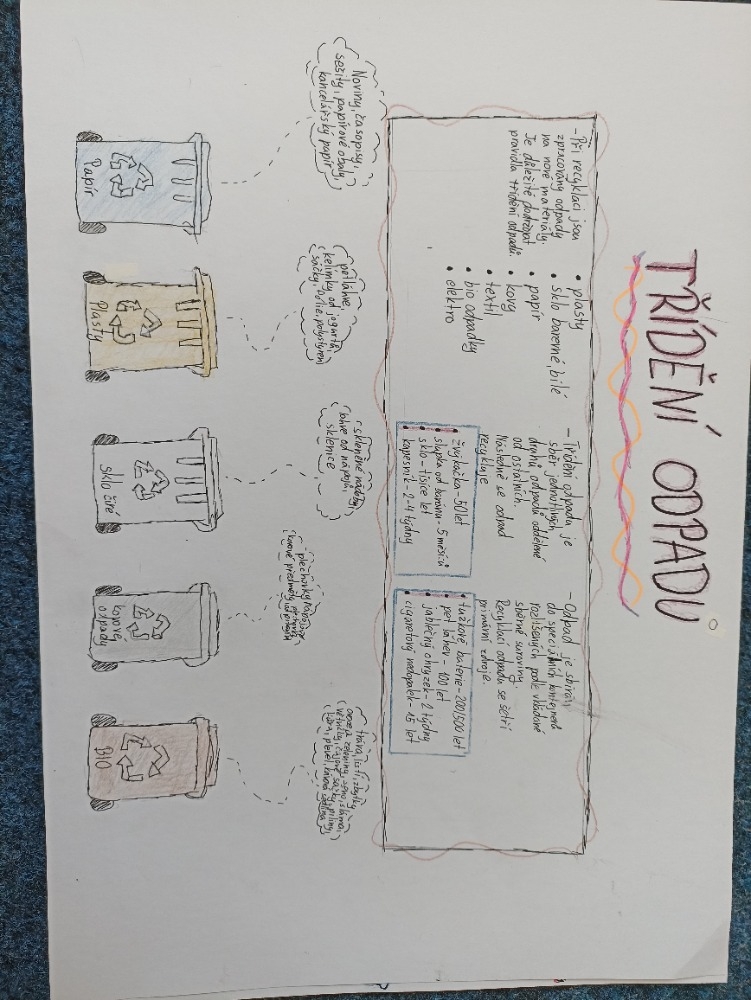 TŘÍDĚNÍ ODPADŮ
- Při recyklaci jsou
zpracovány odpady
na nové materiály.
Je důležité dodržovat
pravidla třídění odpadů.
• plasty
• sklo barevné, bílé
• papír
• kovy
• textil
• bio odpadky
• elektro
- Třídění odpadu je
sběr jednotlivých
druhů odpadů odděleně
od ostatních.
Následně se odpad
recykluje
• žvýkačka - 50 let
• slupka od banánu - 5 měsíců
• sklo - tisíce let
• kapesník - 2-4 týdny
- Odpad je sbírán
do speciálních kontejnerů
rozlišených podle vkládané
sběrné suroviny.
Recyklací odpadu se šetří
primární zdroje.
• tužkové baterie - 200/500 let
• pet láhev - 100 let
• jablečný ohryzek - 2 týdny
• cigaretový nedopalek - 15 let
Noviny, časopisy,
sešity, papírové obaly,
kancelářský papír
pet láhve,
kelímky od jogurtů,
sáčky, fólie, polystyren
skleněné nádoby,
lahve od nápojů,
sklenice
plechovky
kovové předměty
tráva, listí, zbytky
ovoce a zeleniny, seno, sláma,
čajové sáčky, piliny,
kůra, plevel,
Papír
Plasty
sklo čiré
kovové
odpady
BIO